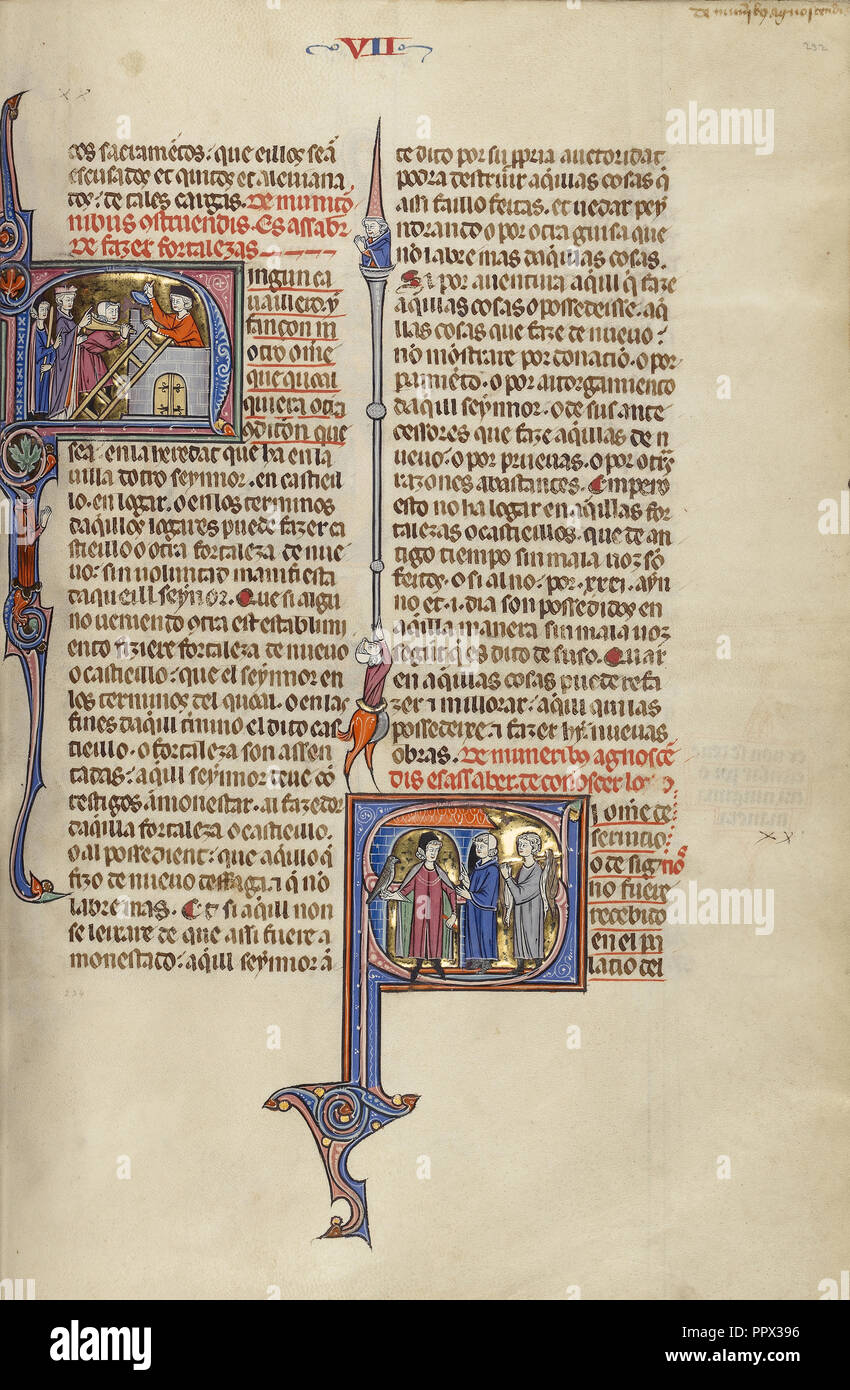 de munibus agnoscendis
292
VII
tos sacrametos: que eillos sea
escusados et quitos et aleuiana
dos: de tales cargas. De munitio
nibus ostruendis. Es assab
de fazer fortalezas
Ningun ca
uaillero. y
fançon ni
otro ome
que qual
quiera otra
condicion que
sea. en la heredat que ha en la
uilla dotro seynnor. en castieill
lo. en logar. o en los terminos
daqillos logares puede fazer ca
stieillo o otra fortaleza de nue
uo: sin uoluntad manifiesta
daqueill seynnor. Que si algu
no ueniendo otra est establimi
ento fiziere fortaleza de nueuo
o castieillo: que el seynnor en
los terminos del qual. o en las
fines daqil tmino el dito cas
tieillo. o fortaleza son assen
tadas: aqill seynnor deue co
testigos amonestar. al fazedor
daqilla fortaleza o castieillo.
o al possedient: que aqillo q
fizo de nueuo desfaga: i q no
labre mas. Et si aqill non
se leixare de que assi fuere a
monestado: aqill seynnor a
te dito por su ppria auctoridat
podra destruir aqillas cosas q
assi faillo feitas. et uedar pey
ndrando o por otra guisa que
no labre mas daqillas cosas.
Si por auentura aqill q faze
aqillas cosas o possedeisse. aq
llas cosas que faze de nueuo:
no mostrare por donacio. o por
pamieto. o por atorgamiento
daqill seynnor. o de sus ante
cessores que faze aqillas de n
ueuo: o por prueuas. o por otras
razones abastantes. Empero
esto no ha logar en aqillas for
talezas o castieillos. que de an
tigo tiempo sin mala uoz so
feitos. o si al no: por. xxxi. ayn
no et. i. dia son posseditos en
aqilla manera sin mala uoz
segunt q es dito de suso. Quar
en aqillas cosas puede refa
zer i millorar: aqill qui las
possedeixe: i fazer hy nueuas
obras. De muneribus agnosce
dis es assaber. de conoscer los
Si ome de
seruicio:
o de signo
no fuere
recebito
en el pa
lacio del
234
alamy
Image ID: PPX396
www.alamy.com